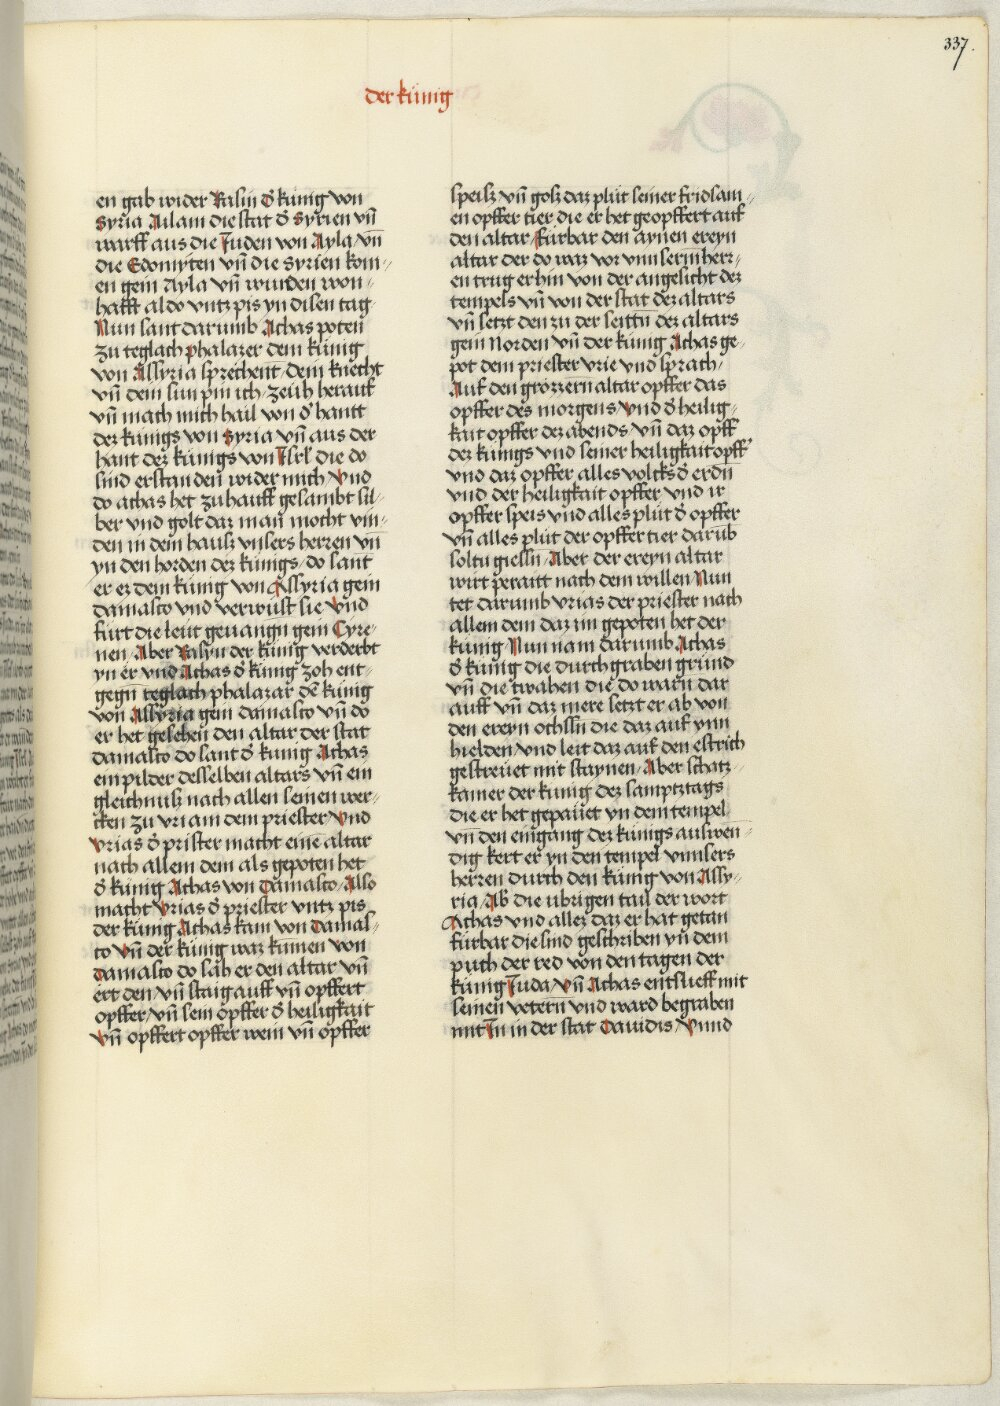 337.
der künig
en gab wider Rasin d̕ künig von
Syria Ailam die stat d̕ Syrien vn̄
warff aus die Juden von Ayla vn̄
die Edomyten vn̄ die syrien kom⸗
en gein Ayla vn̄ wurden won⸗
hafft aldo vntz pis yn disen tag
Nun sant darumb Achas poten
zu teglach phalazer dem künig
von Assyria sprechent / dem knecht
vn̄ dem sun pin ich / zeuh herauf
vn̄ mach mich hail von d̕ hantt
dez künigs von Syria vn̄ aus der
hant dez künigs von Isrl̕ die do
sind erstanden wider mich / Vnd
do achas het zuhauff gesambt sil⸗
ber vnd golt daz man mocht vin⸗
den in dem hausz vnsers herren vn̄
yn den horden dez künigs / do sant
er ez dem künig von Assyria gein
damasco vnd verwüst sie Vnd
fürt die leüt geuangn gein Cyre⸗
nen / Aber Rasyn der künig verderbt
yn er vnd Achas d̕ künig zoh ent⸗
gegn teglach phalazar dē künig
von Assyria gein damasco vn̄ do
er het gesehen den altar der stat
damasco do sant d̕ künig Achas
ein pilder desselben altars vn̄ ein
gleichnusz nach allen seinen wer⸗
cken zu vriam dem priester / Vnd
Vrias d̕ prister macht einē altar
nach allem dem als gepoten het
d̕ künig Achas von Damasco / Also
macht Vrias d̕ priester vntz pis
der künig Achas kam von Damas⸗
co Vn̄ der künig waz kumen von
Damasco do sah er den altar vn̄
ert den vn̄ staig auff vn̄ opffert
opffer / vn̄ sein opffer d̕ heiligkait
Vn̄ opffert opffer wein vn̄ opffer
speisz vn̄ gosz daz plüt seiner fridsam⸗
en opffer tier die er het geopffert auf
den altar / fürbar den aynen ereyn
altar der do waz vor vnserm herr⸗
en trug er hin von der angesicht dez
tempels vn̄ von der stat dez altars
vn̄ setzt den zu der seittn dez altars
gein Norden vn̄ der künig Achas ge⸗
pot dem priester vrie vnd sprach /
Auf den grözzern altar opffer das
opffer des morgens / Vnd d̕ heilig⸗
kait opffer dez abends vn̄ daz opff̕
dez künigs vnd seiner heiligkait opff̕
vnd daz opffer alles volcks d̕ erdn
vnd der heiligkait opffer vnd ir
opffer speis vnd alles plüt d̕ opffer
vn̄ alles plüt der opffer tier darūb
soltu giessn / Aber der ereyn altar
wirt peraitt nach dem willen / Nun
tet darumb vrias der priester nach
allem dem daz im gepoten het der
künig / Nun nam darumb Achas
d̕ künig die durchgraben gründ
vn̄ die twahen die do warn dar
auff vn̄ daz mere setzt er ab von
den ereyn ochssn die daz auf ynn
hielden / vnd leit daz auf den estrich
gestreuet mit staynen / Aber schatz⸗
kamer der künig dez samptztags
die er het gepauet yn dem tempel
vn̄ den eingang dez künigs auswen⸗
dig kert er yn den tempel vnnsers
herren durch den künig von Assy⸗
ria / Ab die übrigen tail der wort
Achas vnd allez daz er hat getan
fürbar die sind geschriben yn dem
puch der red von den tagen der
künig Juda / Vn̄ Achas entslieff mit
seinen vetern vnd ward begraben
mit In in der stat Dauidis / Vnnd